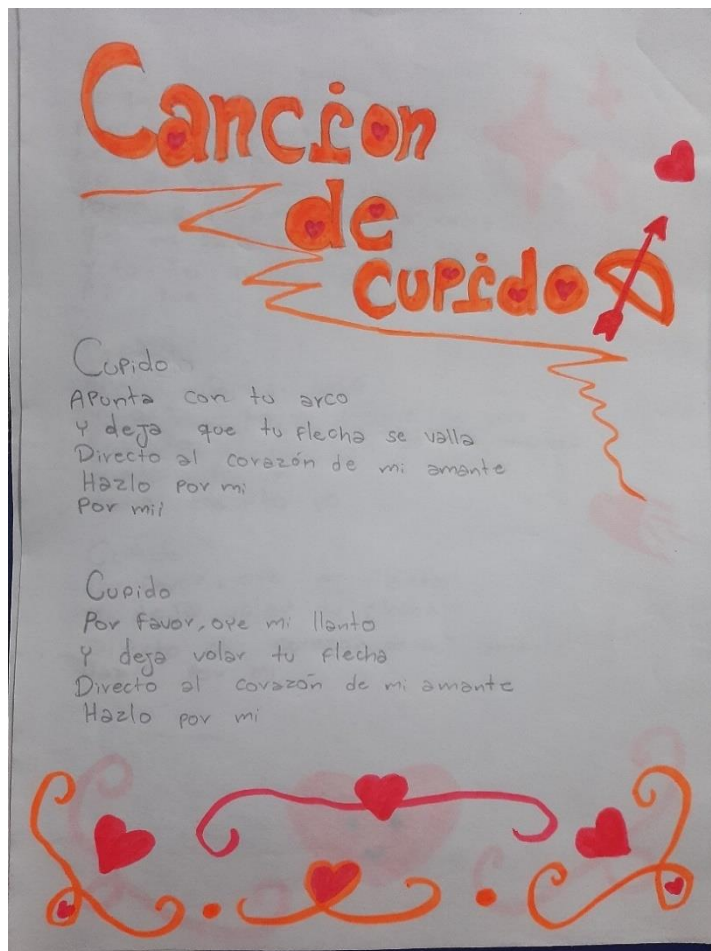 Cancion
de
cupido
Cupido
Apunta con tu arco
Y deja que tu flecha se valla
Directo al corazón de mi amante
Hazlo por mi
Por mii
Cupido
Por favor, oye mi llanto
Y deja volar tu flecha
Directo al corazón de mi amante
Hazlo por mi